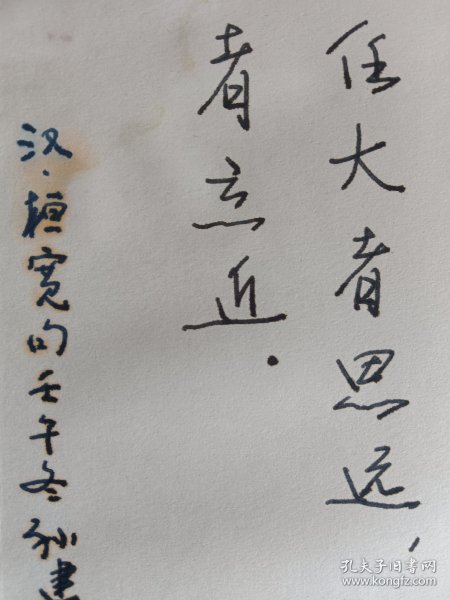 任大者思远，
者忘近.
汉·桓宽句壬午冬孙
孔夫子旧书网
www.kongfz.com